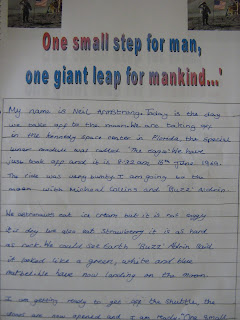 One small step for man,
one giant leap for mankind...'
My name is Neil Armstrong. Today is the day
we take off to the moon. We are taking off
in the Kennedy space center in Florida the special
lunar module was called 'The eagle'. We have
just took off and it is 9:32am, 16th June 1969.
The ride was very bumby. I am going to the
moon with Michael Collins and 'Buzz' Aldrin.
We astronauts eat ice cream but it is not soggy
it is dry. We also eat Strawberrys it is as hard
as rock. We could see Earth 'Buzz' Aldrin said
it looked like a green, white and blue
marbel. We have now landing on the moon.
I am getting ready to get off the shuttle, the
doors are now opened and I am ready. "One small